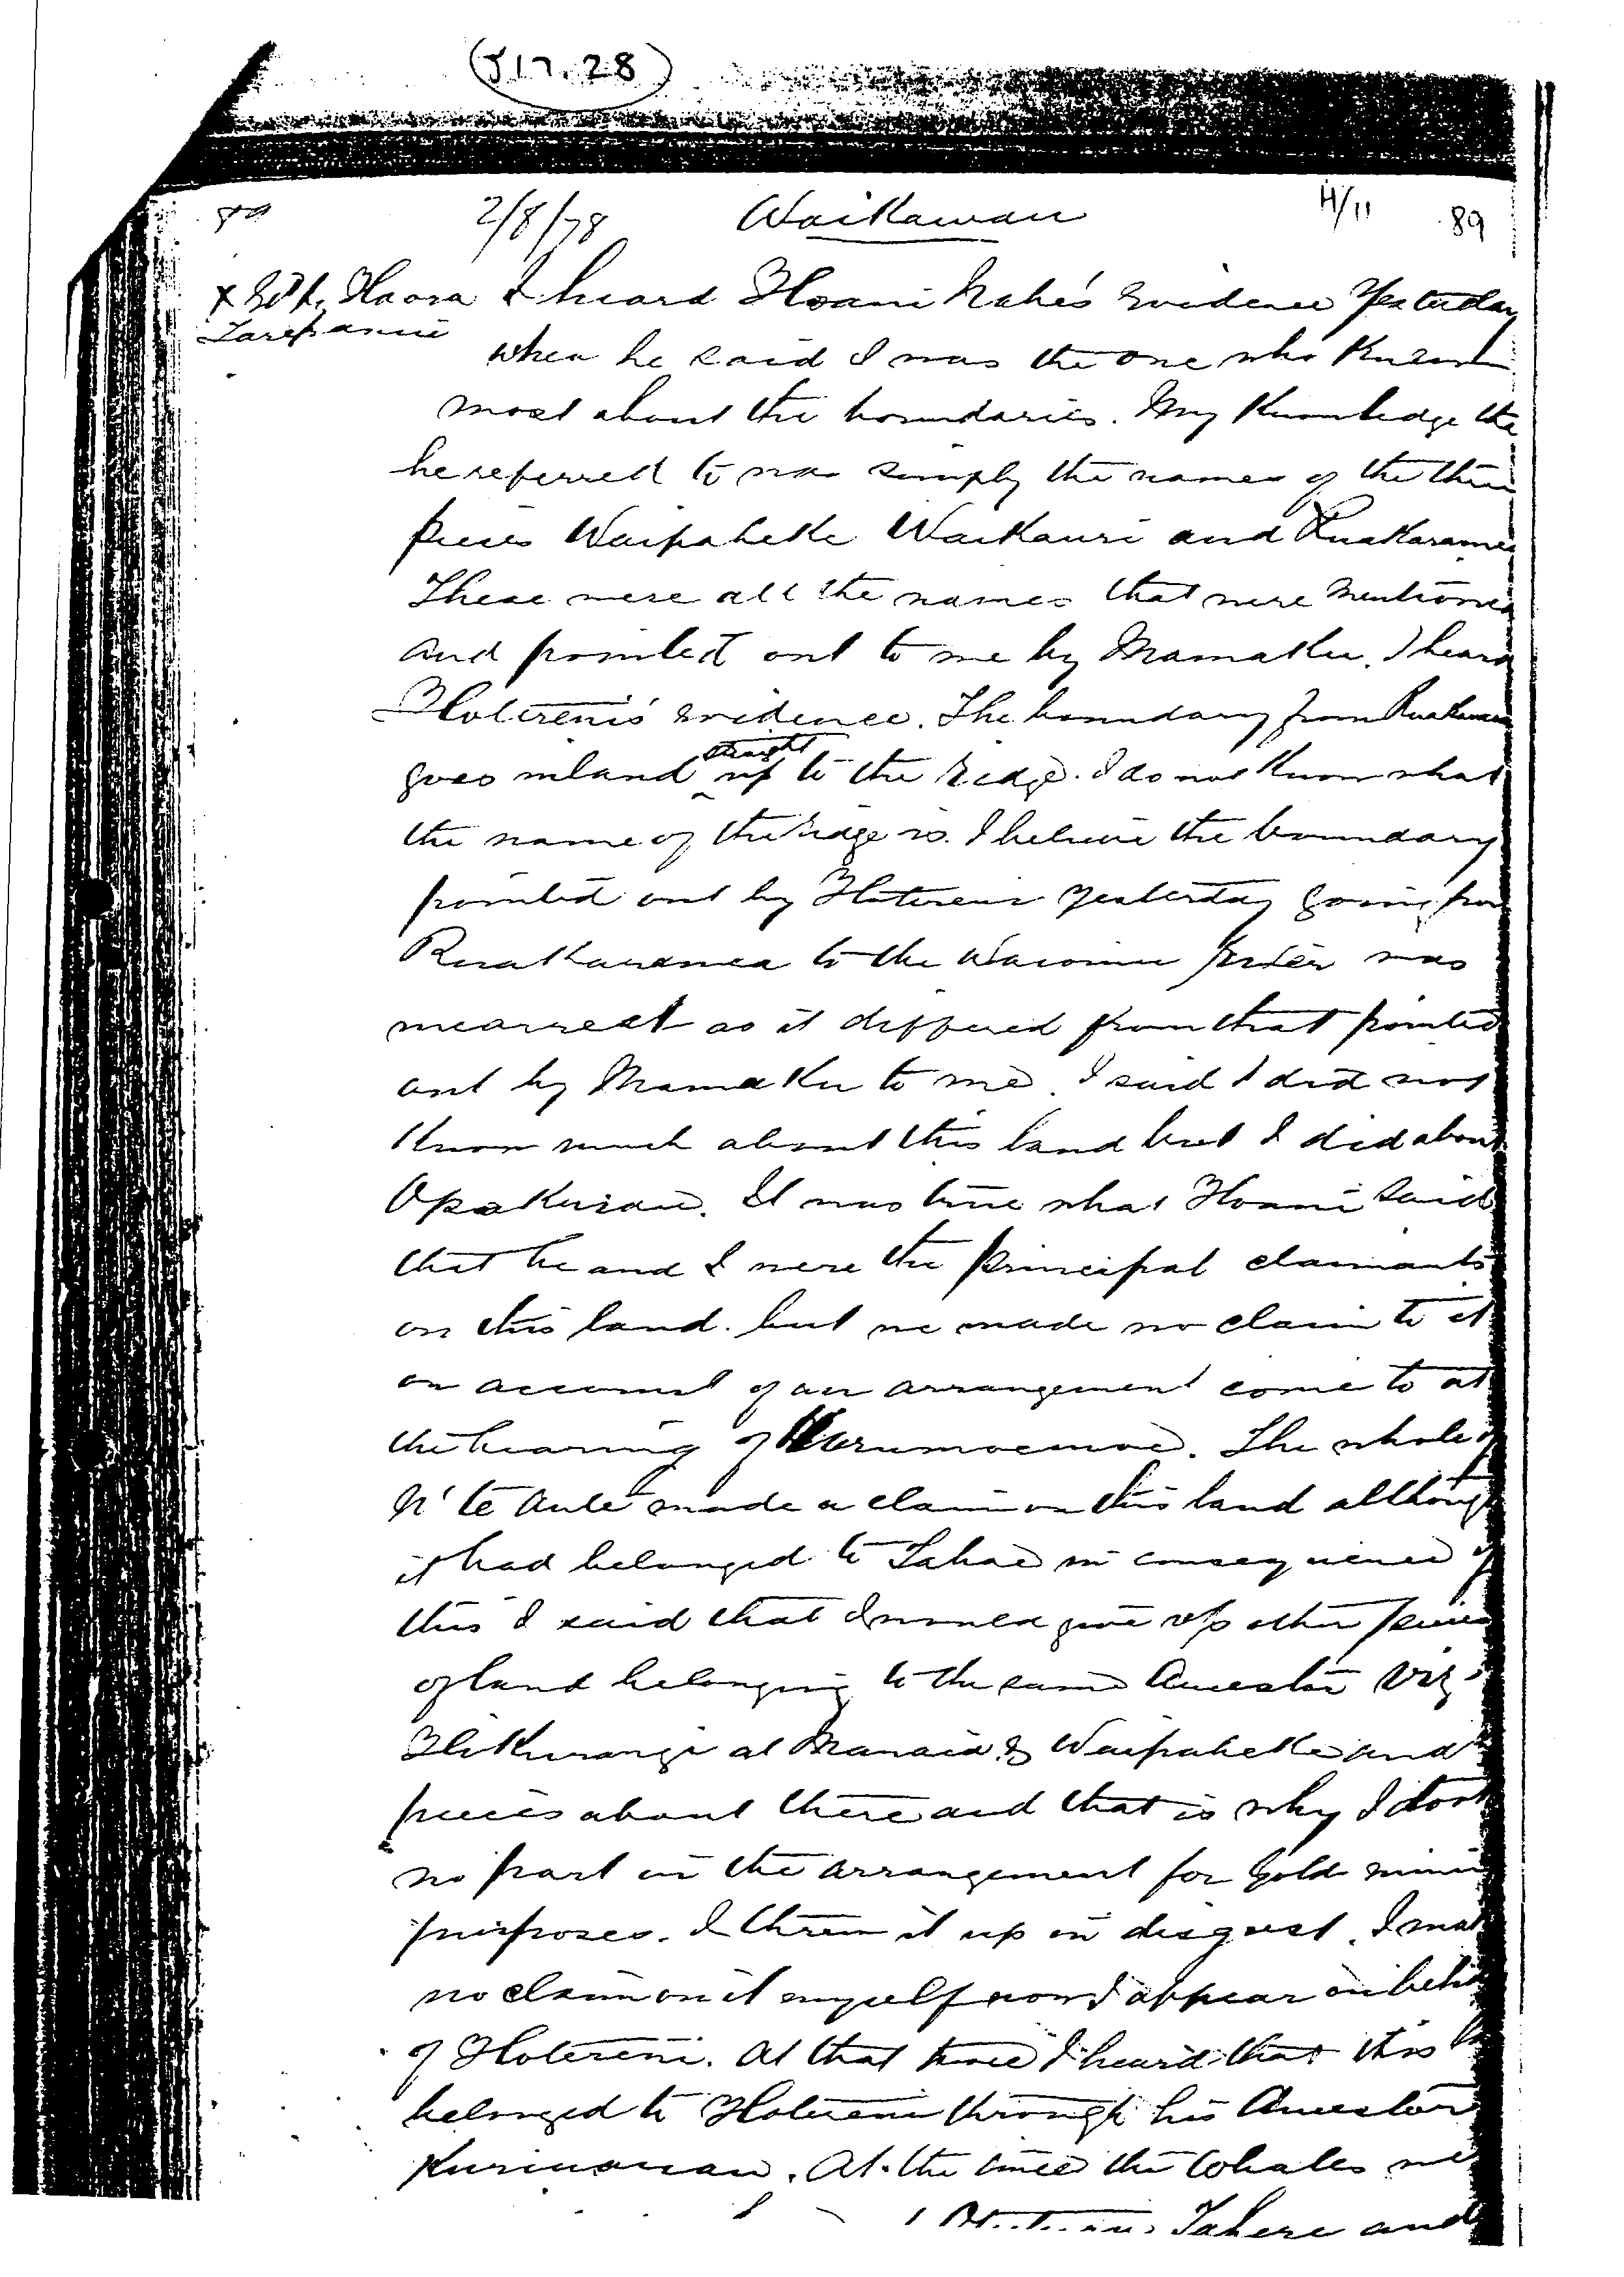 (J17.28)
89 2/8/78 Waikawau H/11 89
x Ext. Haora I heard Hoani Nahe's evidence yesterday
Tareranui
when he said I was the one who knew
most about the boundaries. My knowledge the
he referred to was simply the names of the three
pieces Waipaheke Waikauri and Ruakaramea
These were all the names that were mentioned
and pointed out to me by Mamaku. I heard
Hotereni's evidence. The boundary from
goes inland straight up to the ridge. I do not know what
the name of the ridge is. I believe the boundary
pointed out by Hotereni yesterday going from
Ruakaramea to the was
incorrect as it differed from that pointed
out by Mamaku to me. I said I did not
know much about this land but I did about
Opakurau. It was true what Hoani said
that he and I were the principal claimants
on this land. but we made no claim to it
on account of an arrangement come to at
the hearing of. The whole of
N' te Aute made a claim on this land although
it had belonged to Tahae in consequence of
this I said that I would give up other pieces
of land belonging to the same Ancestor viz
Hikurangi at Manaia & Waipaheke and
pieces about there and that is why I took
no part in the arrangement for Gold mining
purposes. I threw it up in disgust. I make
no claim on it myself now I appear on behalf
of Hotereni. At that time I heard that this
belonged to Hotereni through his Ancestor
At the time the Whales
Tahere and